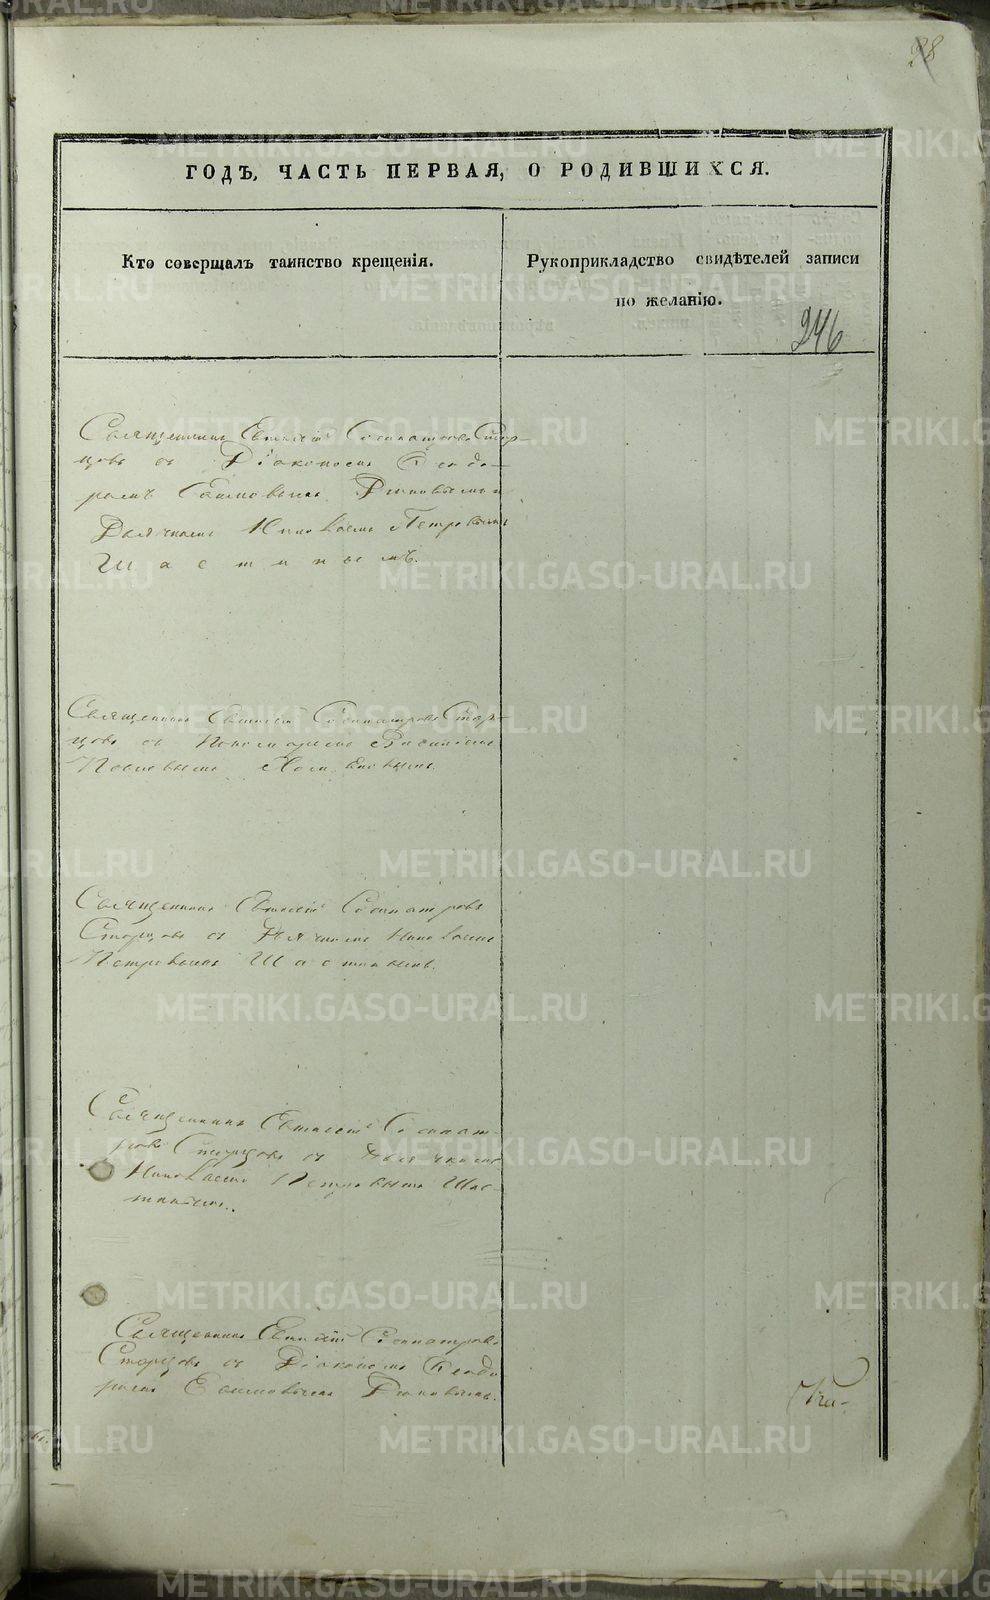 28
ГОДЪ, ЧАСТЬ ПЕРВАЯ, О РОДИВШИХСЯ.
Кто совершалъ таинство крещенія.
Рукоприкладство свидѣтелей записи
по желанію.
246
Священникъ Евгеній Сосипатровъ Стар-
цовъ съ Діакономъ
Дьячкомъ Николаемъ Петровымъ
Шастинымъ.
Священникъ Евгеній Сосипатровъ Стар-
цовъ съ Пономаремъ Василіемъ
Священникъ Евгеній Сосипатровъ
Старцовъ съ Дьячкомъ Николаемъ
Петровымъ Шастинымъ.
Священникъ Евгеній Сосипат-
ровъ Старцовъ съ Дьячкомъ
Николаемъ Петровымъ Шас-
тинымъ.
Священникъ Евгеній Сосипатровъ
Старцовъ съ Діакономъ
METRIKI.GASO-URAL.RU